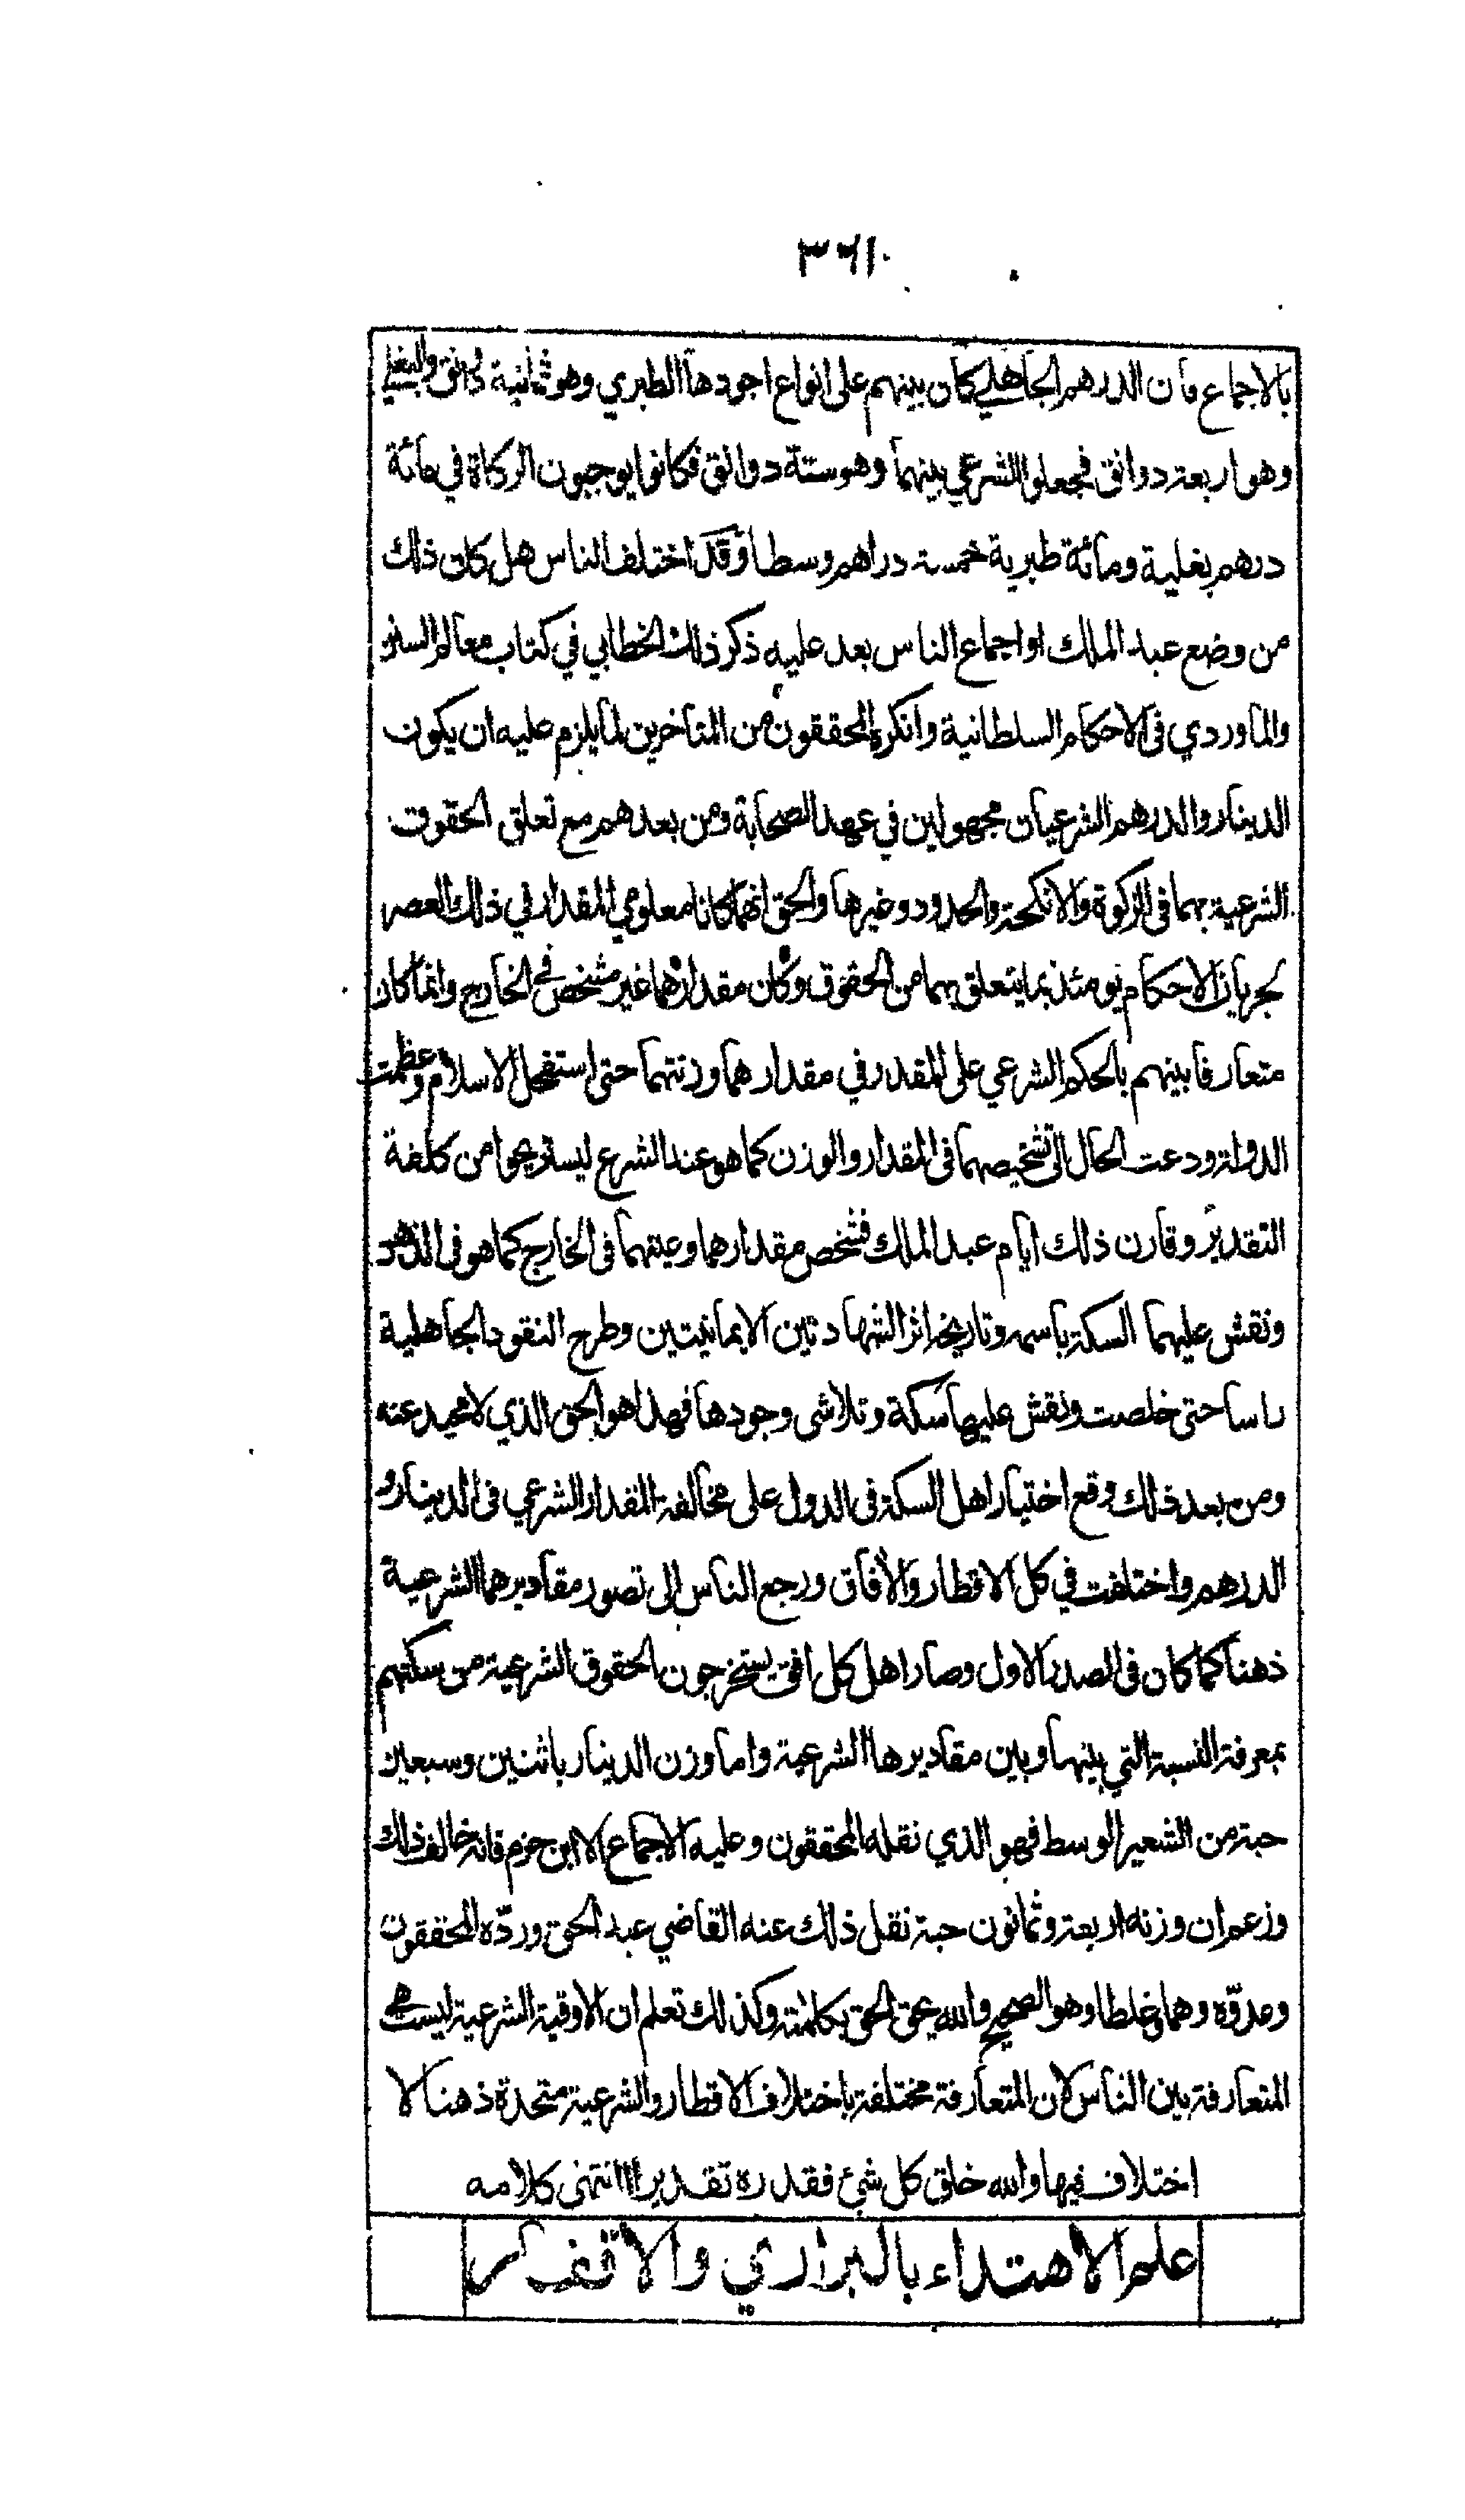 ٣٦١
بالاجماع فان الدرهم الجاهلي كان بينهم على انواع اجودها الطبري وهو ثمانية دوانق والبغلي
وهو اربعة دوانق فجعلوا الشرعي بينهما وهو ستة دوانق فكانوا يوجبون الزكاة في مائة
درهم بغلية ومائة طبرية خمسة دراهم وسطا وقد اختلف الناس هل كان ذلك
من وضع عبد الملك او اجماع الناس بعد عليه ذكر ذلك الخطابي في كتاب معالم السنن
والماوردي في الاحكام السلطانية وانكره المحققون من المتاخرين لما يلزم عليه ان يكون
الدينار والدرهم الشرعيان مجهولين في عهد الصحابة ومن بعدهم مع تعلق الحقوق
الشرعية بهما في الزكوة والانكحة والحدود وغيرها والحق انهما كانا معلومي المقدار في ذلك العصر
لجريان الاحكام يومئذ بما يتعلق بهما من الحقوق وكان مقدارهما غير مشخص في الخارج وانما كان
متعارفا بينهم بالحكم الشرعي على المقدر في مقدارهما وزنتهما حتى استفحل الاسلام وعظمت
الدولة ودعت الحال الى تشخيصهما في المقدار والوزن كما هو عند الشرع ليستريحوا من كلفة
التقدير وقارن ذلك ايام عبد الملك فشخص مقدارهما وعينهما في الخارج كما هو في الذهن
ونقش عليهما السكة باسمه وتاريخه اثر الشهادتين الايمانيتين وطرح النقود الجاهلية
راسا حتى خلصت ونقش عليها سكة وتلاشى وجودها فهذا هو الحق الذي لا محيد عنه
ومن بعد ذلك وقع اختيار اهل السكة في الدول على مخالفة المقدار الشرعي في الدينار و
الدرهم واختلفت في كل الاقطار والآفاق ورجع الناس الى تصور مقاديرهما الشرعية
ذهنا كما كان في الصدر الاول وصار اهل كل افق يستخرجون الحقوق الشرعية من سكتهم
بمعرفة النسبة التي بينها وبين مقاديرها الشرعية واما وزن الدينار باثنين وسبعين
حبة من الشعير الوسط فهو الذي نقله المحققون وعليه الاجماع الا ابن حزم فانه خالف ذلك
وزعم ان وزنه اربعة وثمانون حبة نقل ذلك عنه القاضي عبد الحق وردّه المحققون
وعدّوه وهما وغلطا وهو الصحيح والله يحق الحق بكلماته وكذلك تعلم ان الاوقية الشرعية ليست هي
المتعارفة بين الناس لان المتعارفة مختلفة باختلاف الاقطار والشرعية متحدة ذهنا لا
اختلاف فيها والله خلق كل شئ فقدره تقديرا انتهى كلامه
علم الاهتداء بالبراري والاقفار